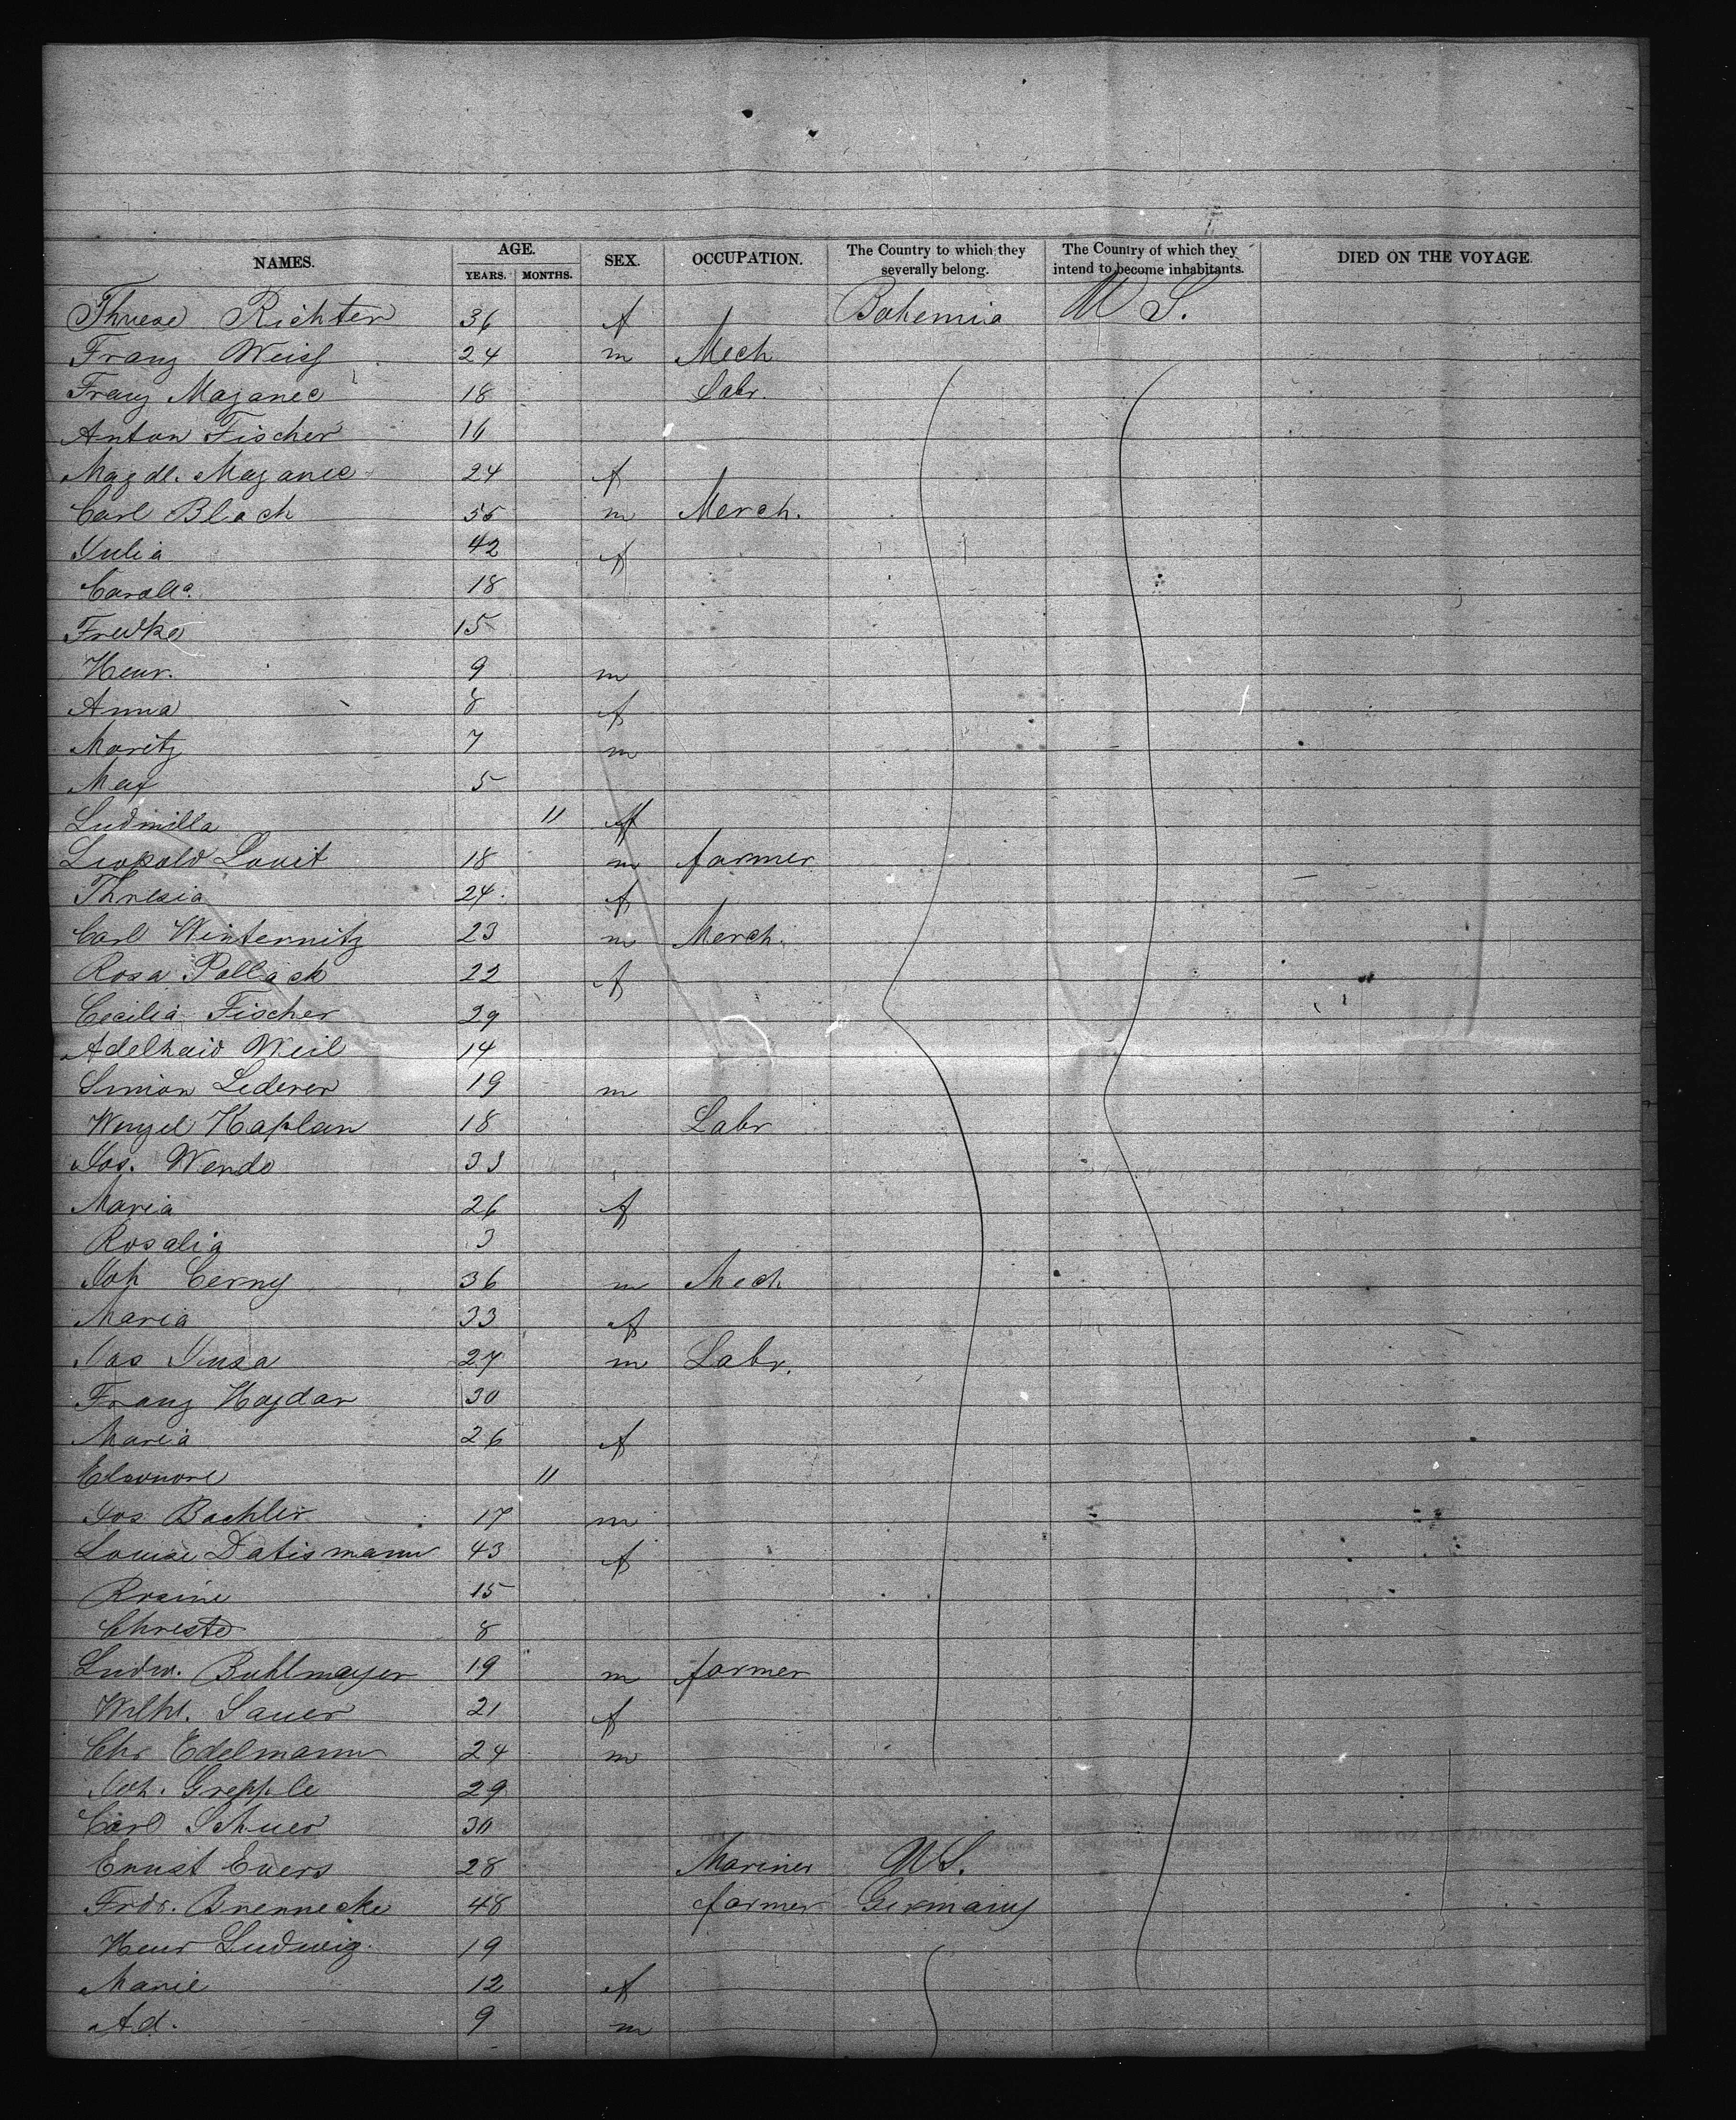 NAMES. AGE. YEARS. MONTHS. SEX. OCCUPATION. The Country to which they severally belong. The Country of which they intend to become inhabitants. DIED ON THE VOYAGE.
Threse Richter 36 f Bohemia U S.
Franz Weiss 24 m Mech
Franz Mazanec 18 Labr.
Anton Fischer 16
Magdl. Mazanec 24 f
Carl Bloch 55 m Merch.
Julia 42 f
Carola 18
Fredke 15
Henr. 9 m
Anna 8 f
Moritz 7 m
Max 5
Ludmilla 11 f
Leopold Lowit 18 m farmer
Thresia 24 f
Carl Winternitz 23 m Merch.
Rosa Pollack 22 f
Cecilia Fischer 29
Adelhaid Weil 14
Simon Lederer 19 m
Wenzel Kaplan 18 Labr
Jos. Wende 33
Maria 26 f
Rosalia 3
Joh Cerny 36 m Mech
Maria 33 f
Jos 27 m Labr.
Franz Hajdar 30
Maria 26 f
Eleonore 11
Jos Bachler 17 m
Louise Datismann 43 f
15
Christe 8
Ludw. Buhlmayer 19 m farmer
Wilh. Sauer 21 f
Chr Edelmann 24 m
Joh. Grepple 29
Carl 30
Ernst Evers 28 Mariner U S.
Frdr. Brennecke 48 farmer Germany
Henr Ludwig 19
Marie 12 f
Ad. 9 m